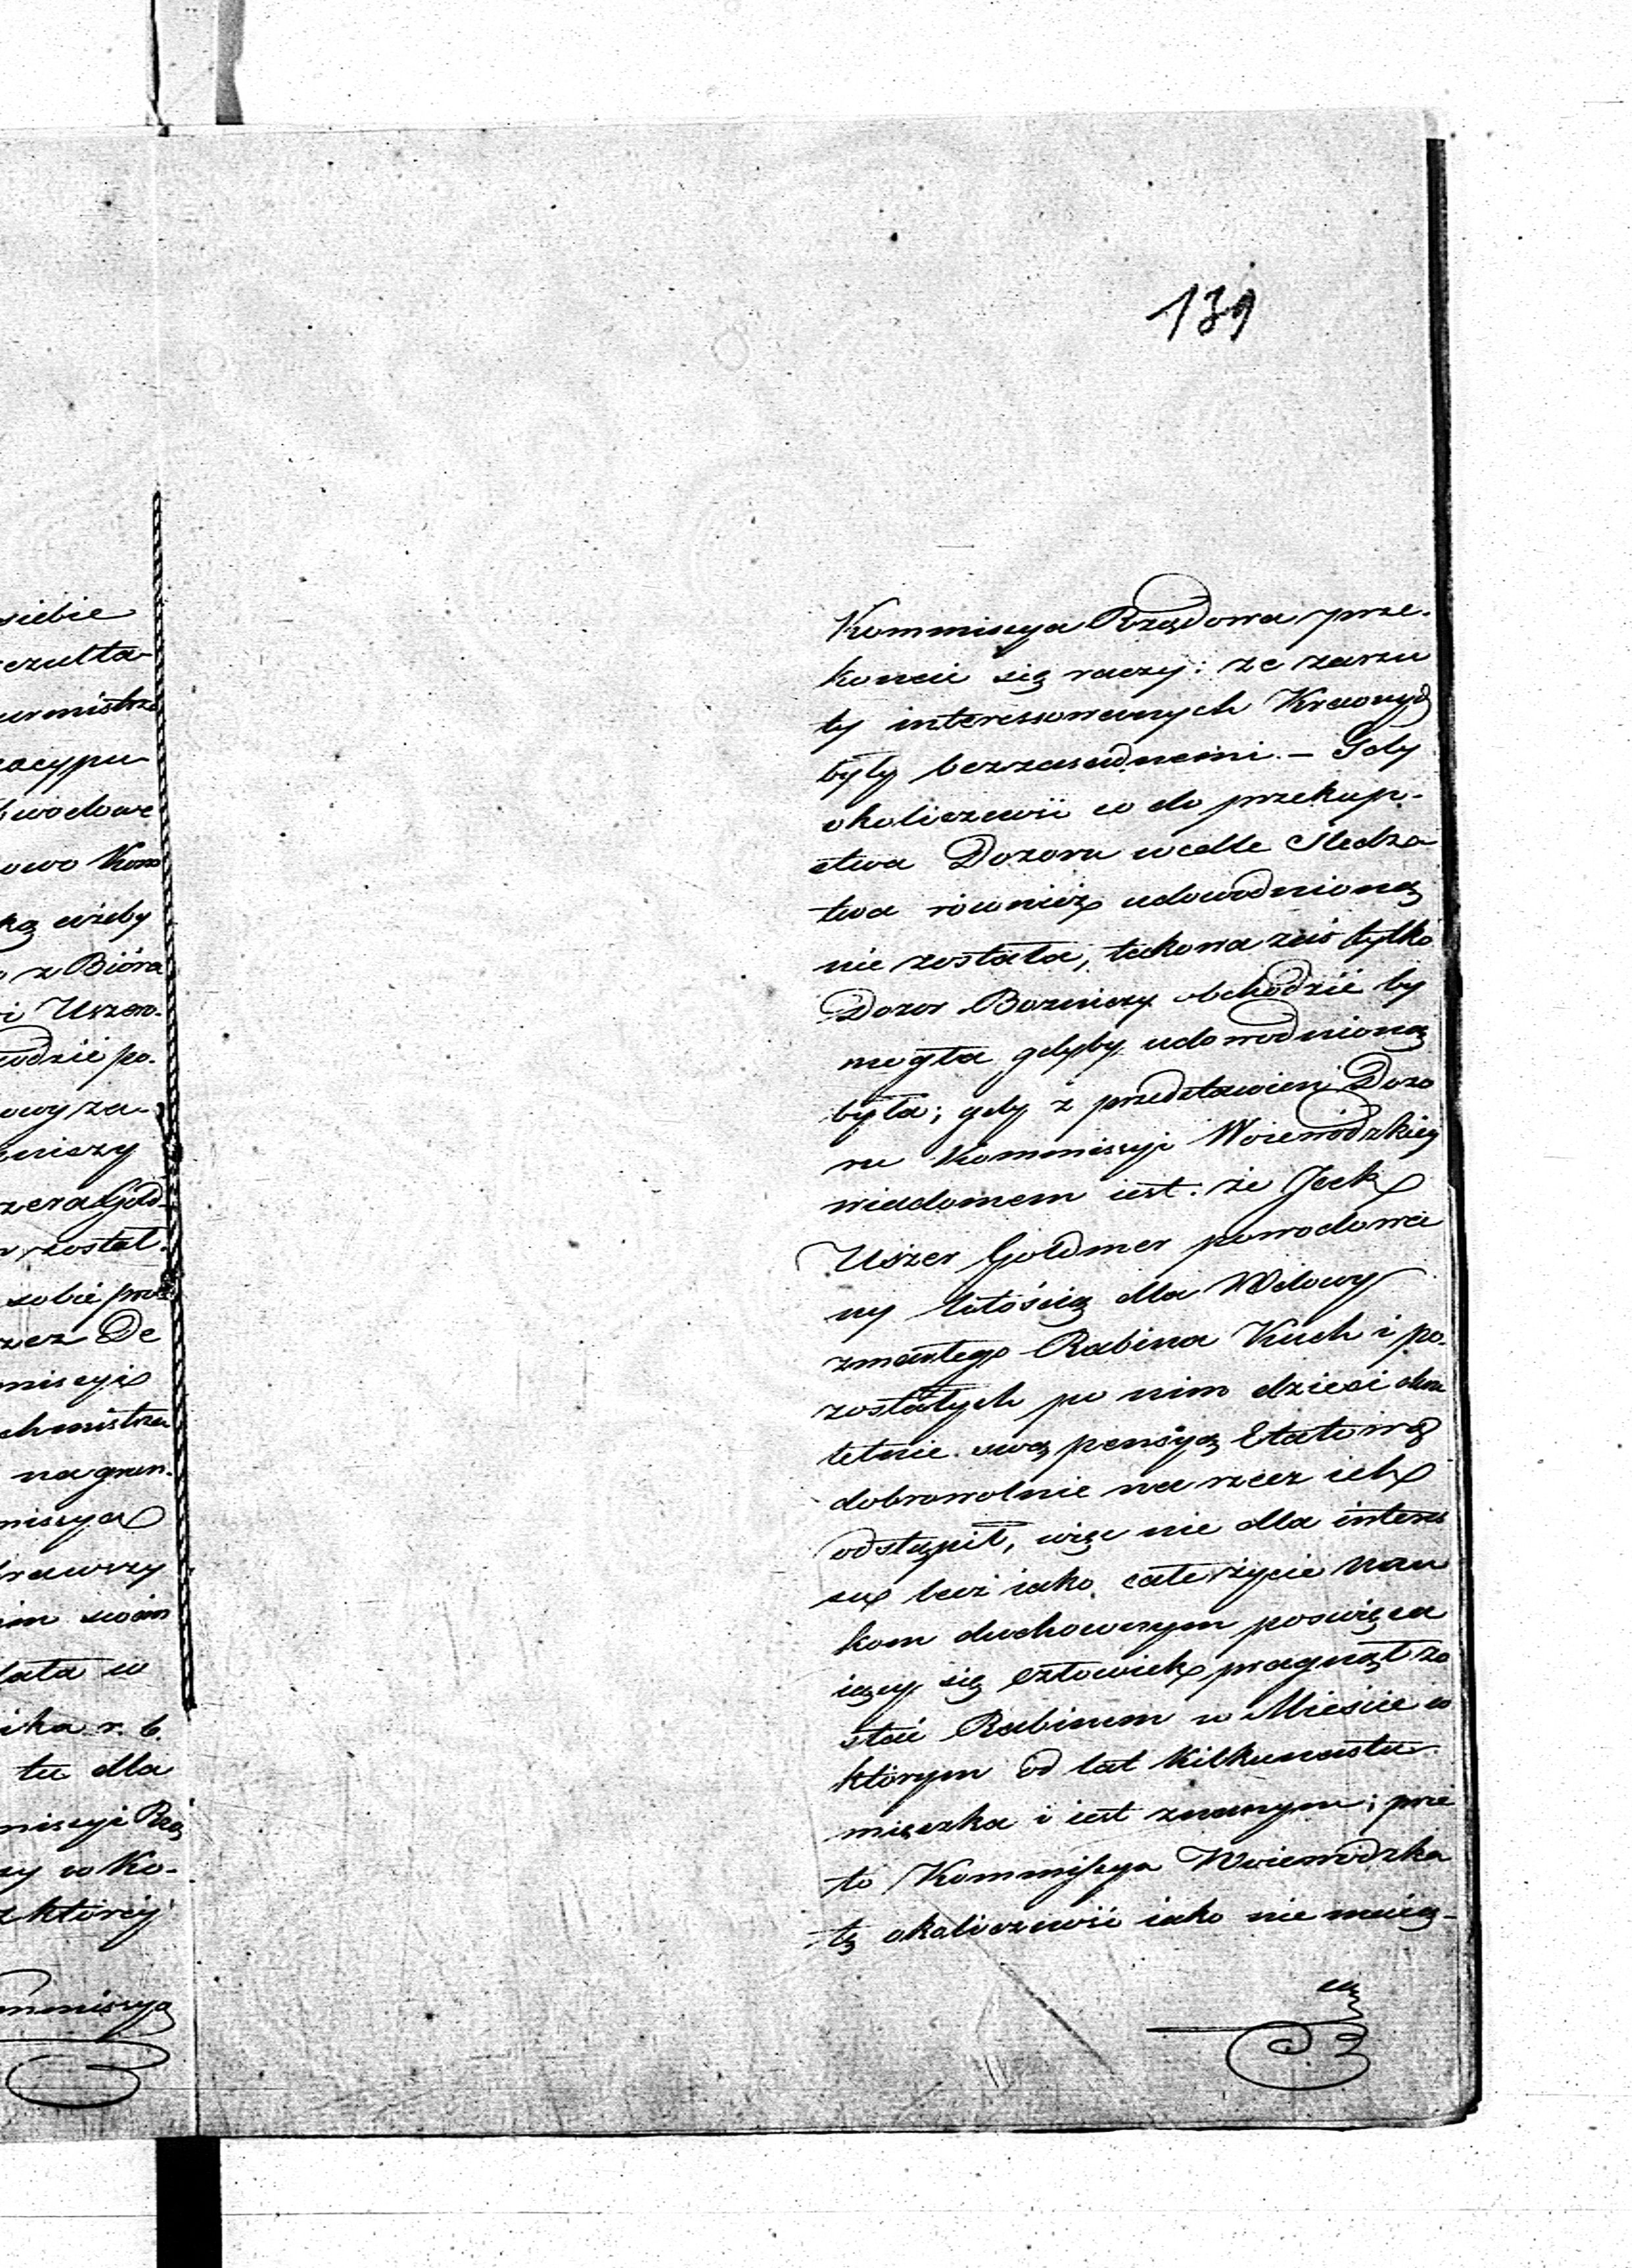 139
siebie
ezulta-
urmistrza
acypu-
bwodowe
owo Kom
ką ażeby
z Bióra
i Uszero-
odzie po-
owy za-
niczy
zera Gold-
został
sobie prze
zez De
missyi
chmistrza
na grun-
missya
brawszy
im swoim
lata w
ika r. b.
tu dla
missyi Rzą
zy w Ko-
z którey
ommissya
Kommissya Rządowa prze-
konać się raczy: że zarzu
ty interessowanych Kraonych
były bezzasadnemi. – Gdy
okoliczność co do przekup-
stwa Dozoru wedle Śledz
twa również udowodnioną
nie została, takowa zaś tylko
Dozor Bożniczy obchodzić by
mogła gdyby udowodnioną
była; gdy z przedstawień Dozo
ru Kommissyi Woiewódzkiey
wiadomem iest: że Jcek
Uszer Goldmer powodowa
ny litością dla Wdowy
zmarłego Rabina Kuch i po-
zostałych po nim dzieci
letnie swą pensyą Etatową
dobrowolnie na rzecz ich
odstąpił, więc nie dla interes
su lecz iako całe życie nau
kom duchownym poswięca
iący się człowiek pragnął zo
stać Rabinem w Mieście w
którym od lat kilkunastu
mięszka i iest znanym; prze
to Kommissya Woiewódzka
tę okoliczność iako nie maią-
cą